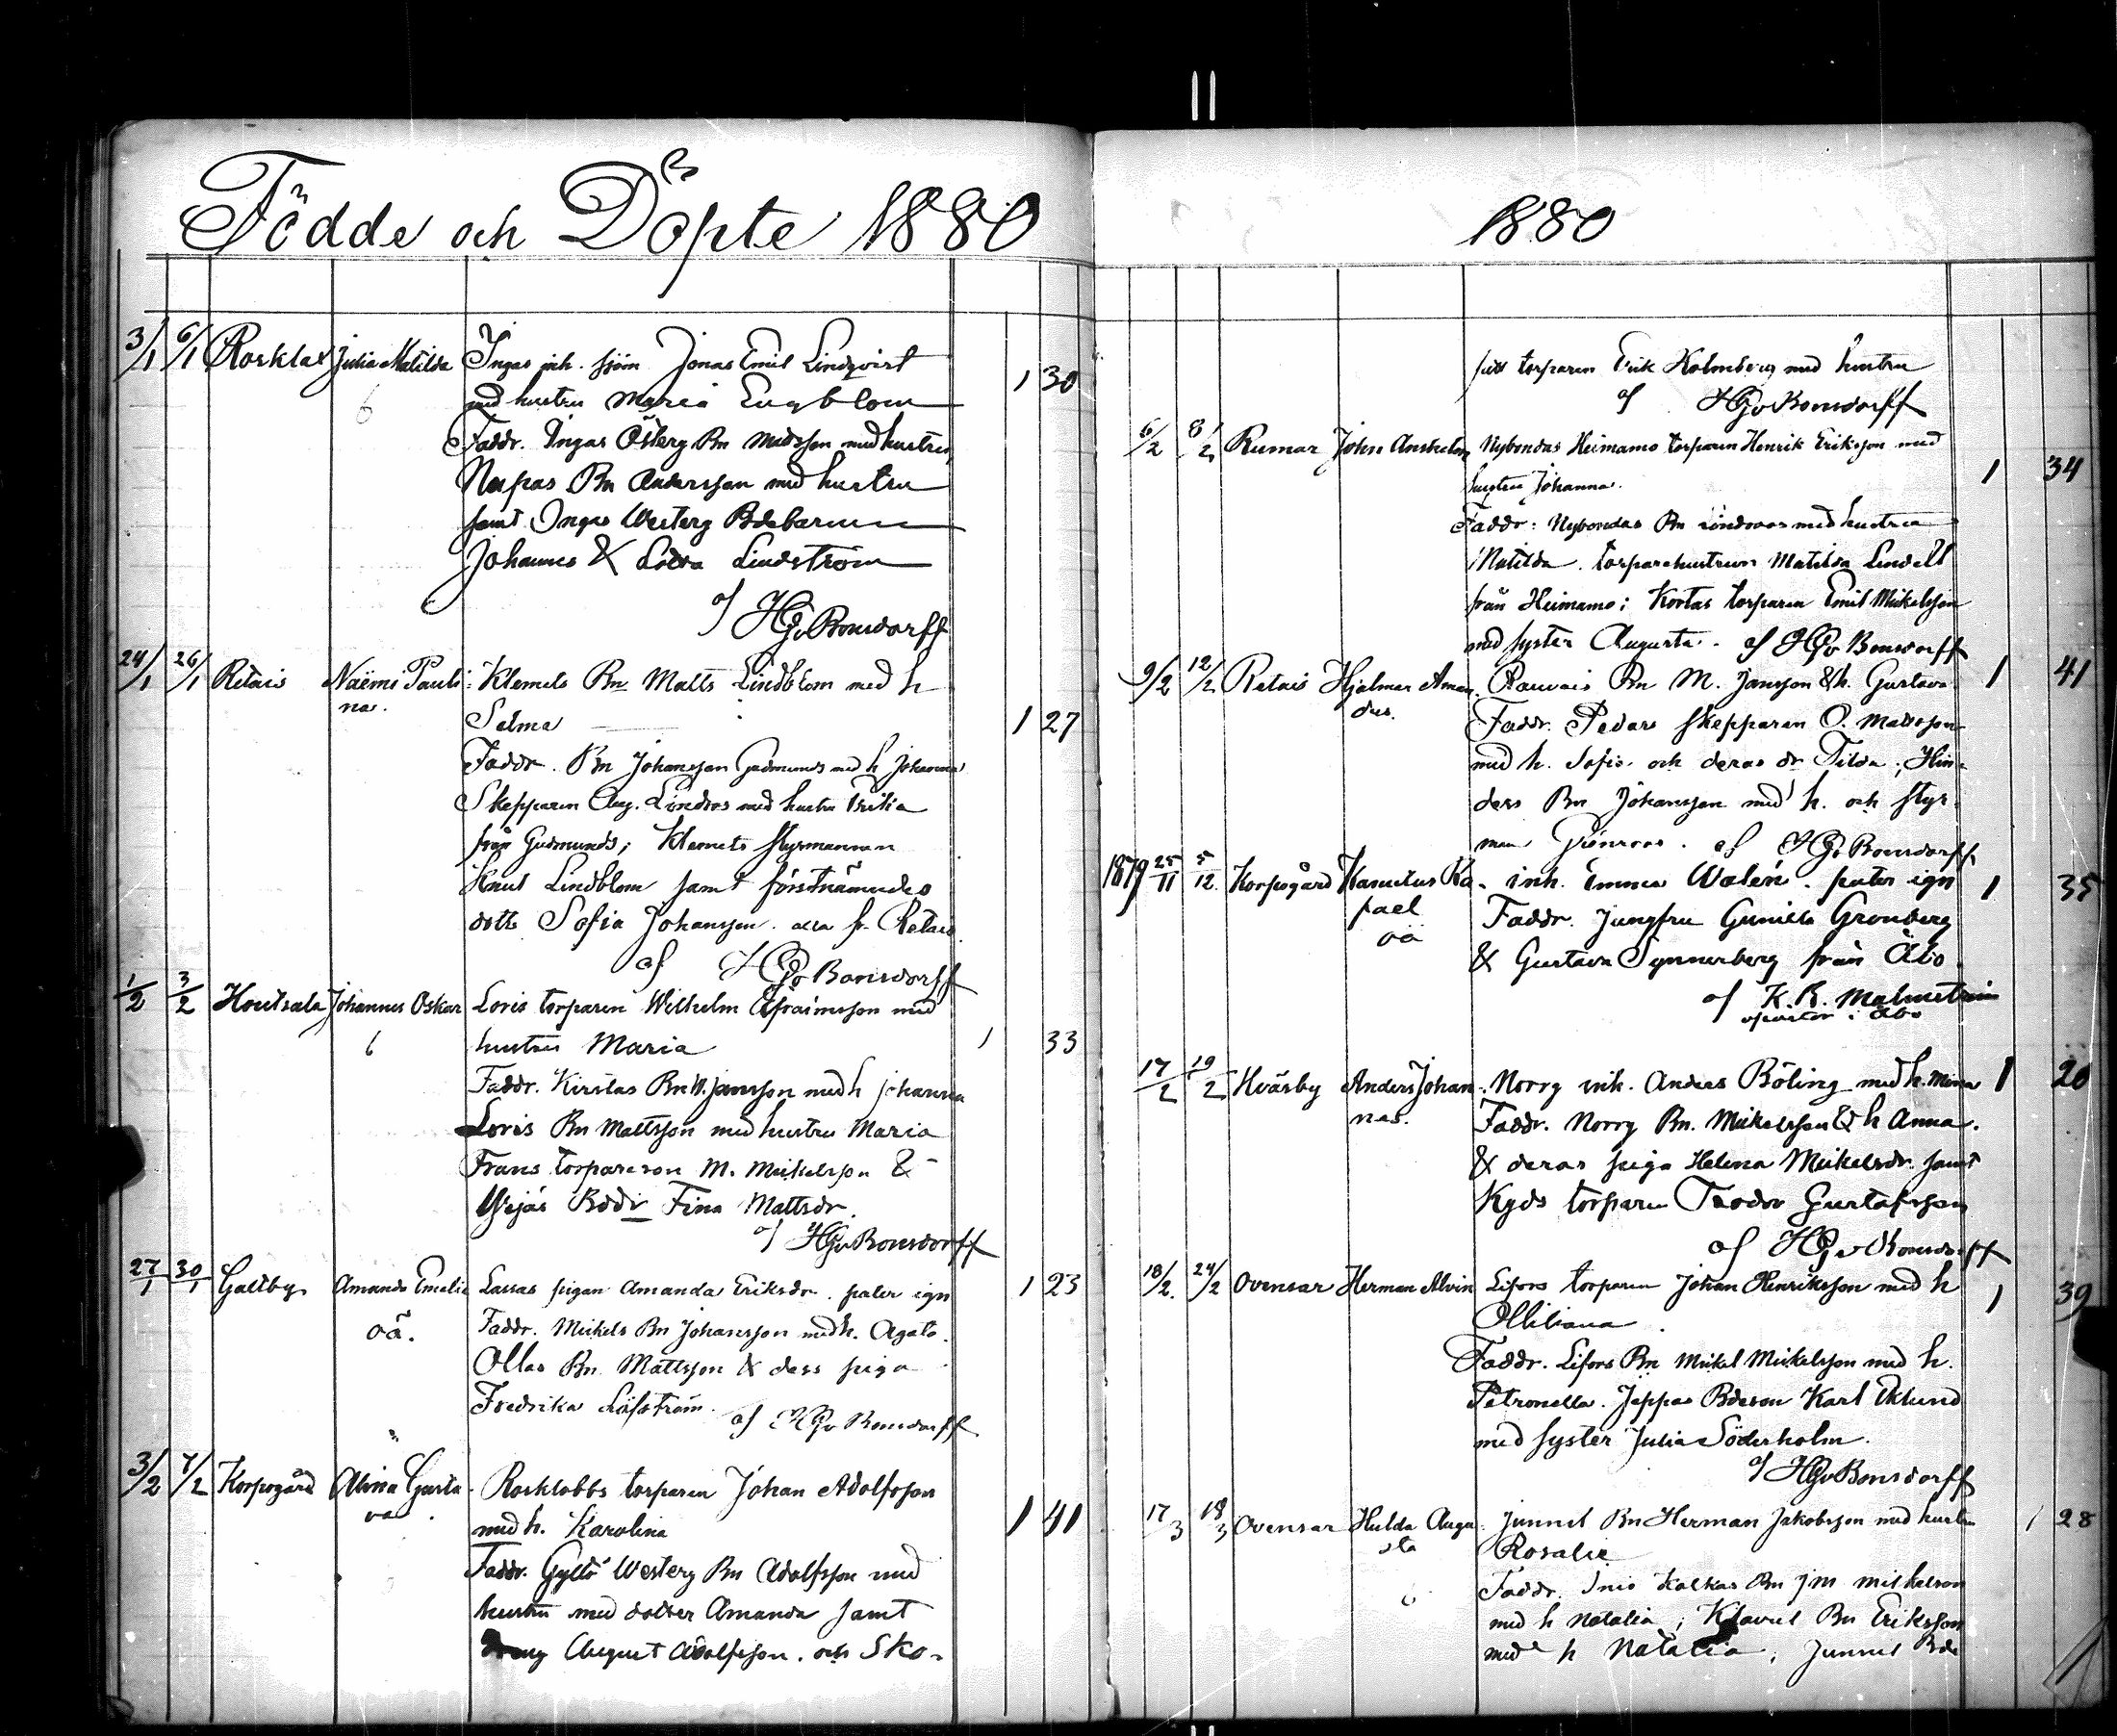 Födde och Döpte 1880
3/1 6/1 Rosklax Julia Matilda Ingas inh. sjöm Jonas Emil Lindqvist
med hustru Maria Engblom 1 30
6
Faddr. Ingas Österg Bn Madsson med hustru
Bn Andersson med hustru
samt Ingas Westerg Bdebarnen
Johannes & Lovisa Lindström
af HGvBonsdorff
24/1 26/1 Retais Naëmi Pauli- Klemets Bn Matts Lindblom med h
na. Selma 1 27
Faddr. Bn Johansson Gudmunds med h Johanna
Skepparen Aug. Lindroos med hustru
från Gudmunds; Klemets styrmannen
Knut Lindblom samt förstnämndes
dottr Sofia Johansson. alla fr. Retais.
af HGvBonsdorff
1/2 3/2 Houtsala Johannes Oskar Loris torparen Wilhelm Efraimsson med
6 hustru Maria 1 33
Faddr. Kirstas Bn W. Jansson med h Johanna
Loris Bn Mattsson med hustru Maria
Frans torpareson M. Mickelsson &
Bddr Fina Mattsdr.
af HGvBonsdorff
27/1 30/1 Galtby Amanda Emelie Lassas pigan Amanda Eriksdr. pater ign 1 23
oä. Faddr. Mickels Bn Johansson med h. Agata.
Ollas Bn Mattsson & dess piga
Fredrika Löfström.
af HGvBonsdorff
3/2 7/2 Korpogård Alina Gusta- Rosklobbs torparen Johan Adolfsson
va. med h. Karolina 1 41
Faddr. Gyltö Westerg Bn Adolfsson med
hustru med dotter Amanda samt
dreng August Adolfsson. och Sko-
1880
torparen Erik Holmberg med hustru
af HGvBonsdorff
6/2 8/2 Rumar John Anshelm Nybondas Heimamo torparen Henrik Eriksson med
hustru Johanna. 1 34
Faddr: Nybondas Bn Lindroos med hustru
Matilda. torparehustrun Matilda Lindell
från Heimamo; Kortas torparen Emil Mickelsson
med syster Augusta. af HGvBonsdorff
9/2 12/2 Retais Hjalmar Aman- Rauvais Bn M. Jansson & h. Gustava 1 41
dus. Faddr. Pedars skepparen O. Mattsson
med h. Sofia och deras dr Tilda; Hin-
ders Bn Johansson med h. och styr-
man Grönroos. af HGvBonsdorff
1879 25/11 5/12 Korpogård Kanutus Ra- inh. Emma Walén. pater ign 1 35
fael Faddr. Jungfru Gunilla Grönberg
oä & Gustava Synnerberg från Åbo.
af K. R. Malmström
pastor i Åbo
17/2 19/2 Hväsby Anders Johan- Norrg inh. Anders Böling med h. Mina 1 20
nes. Faddr. Norrg Bn. Mickelsson & h Anna.
& deras piga Helena Mickelsdr. samt
Kyds torparen Teodor Gustafsson
af HGvBonsdorff
18/2 24/2 Ovensar Herman Alvin Lifors torparen Johan Henriksson med h
1 39
Faddr. Lifors Bn Mickel Mickelsson med h.
Petronella. Jeppas Bdeson Karl Eklund
med syster Julia Söderholm.
af HGvBonsdorff
17/3 18/3 Ovensar Hulda Augu- Junnil Bn Herman Jakobsson med hustru 1 28
sta Rosalie
Faddr. Inio Kalkas Bn Mickelsson
med h Natalia; Bn Eriksson
med h Natalia; Junnil Bde